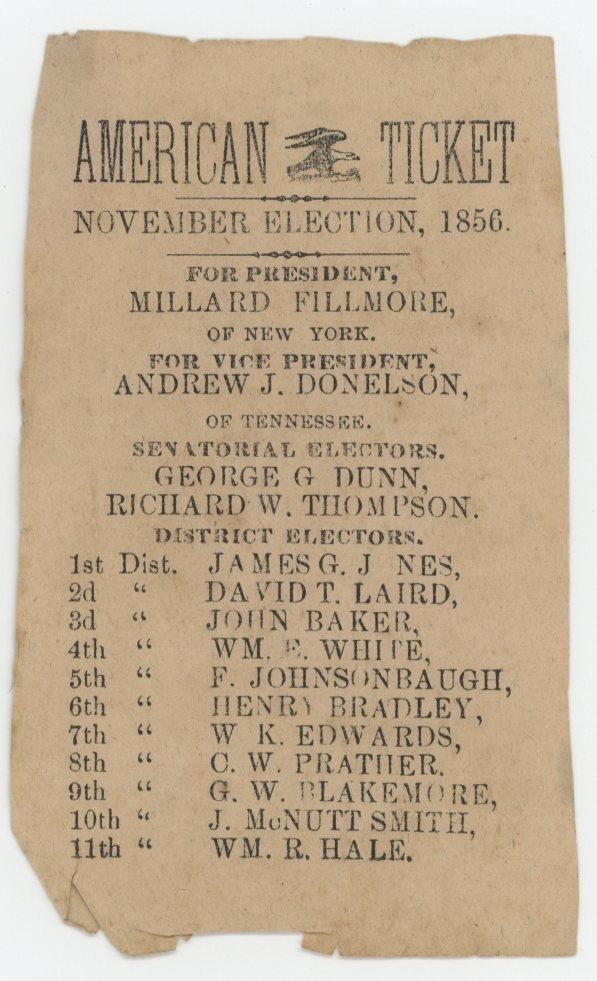 AMERICAN TICKET
NOVEMBER ELECTION, 1856.
FOR PRESIDENT,
MILLARD FILLMORE,
OF NEW YORK.
FOR VICE PRESIDENT,
ANDREW J. DONELSON,
OF TENNESSEE.
SENATORIAL ELECTORS.
GEORGE G DUNN,
RICHARD W. THOMPSON.
DISTRICT ELECTORS.
1st Dist. JAMES G. J NES,
2d “ DAVID T. LAIRD,
3d “ JOHN BAKER,
4th “ WM. E. WHITE,
5th “ F. JOHNSONBAUGH,
6th “ HENRY BRADLEY,
7th “ W K. EDWARDS,
8th “ C. W. PRATHER.
9th “ G. W. BLAKEMORE,
10th “ J. McNUTT SMITH,
11th “ WM. R. HALE.